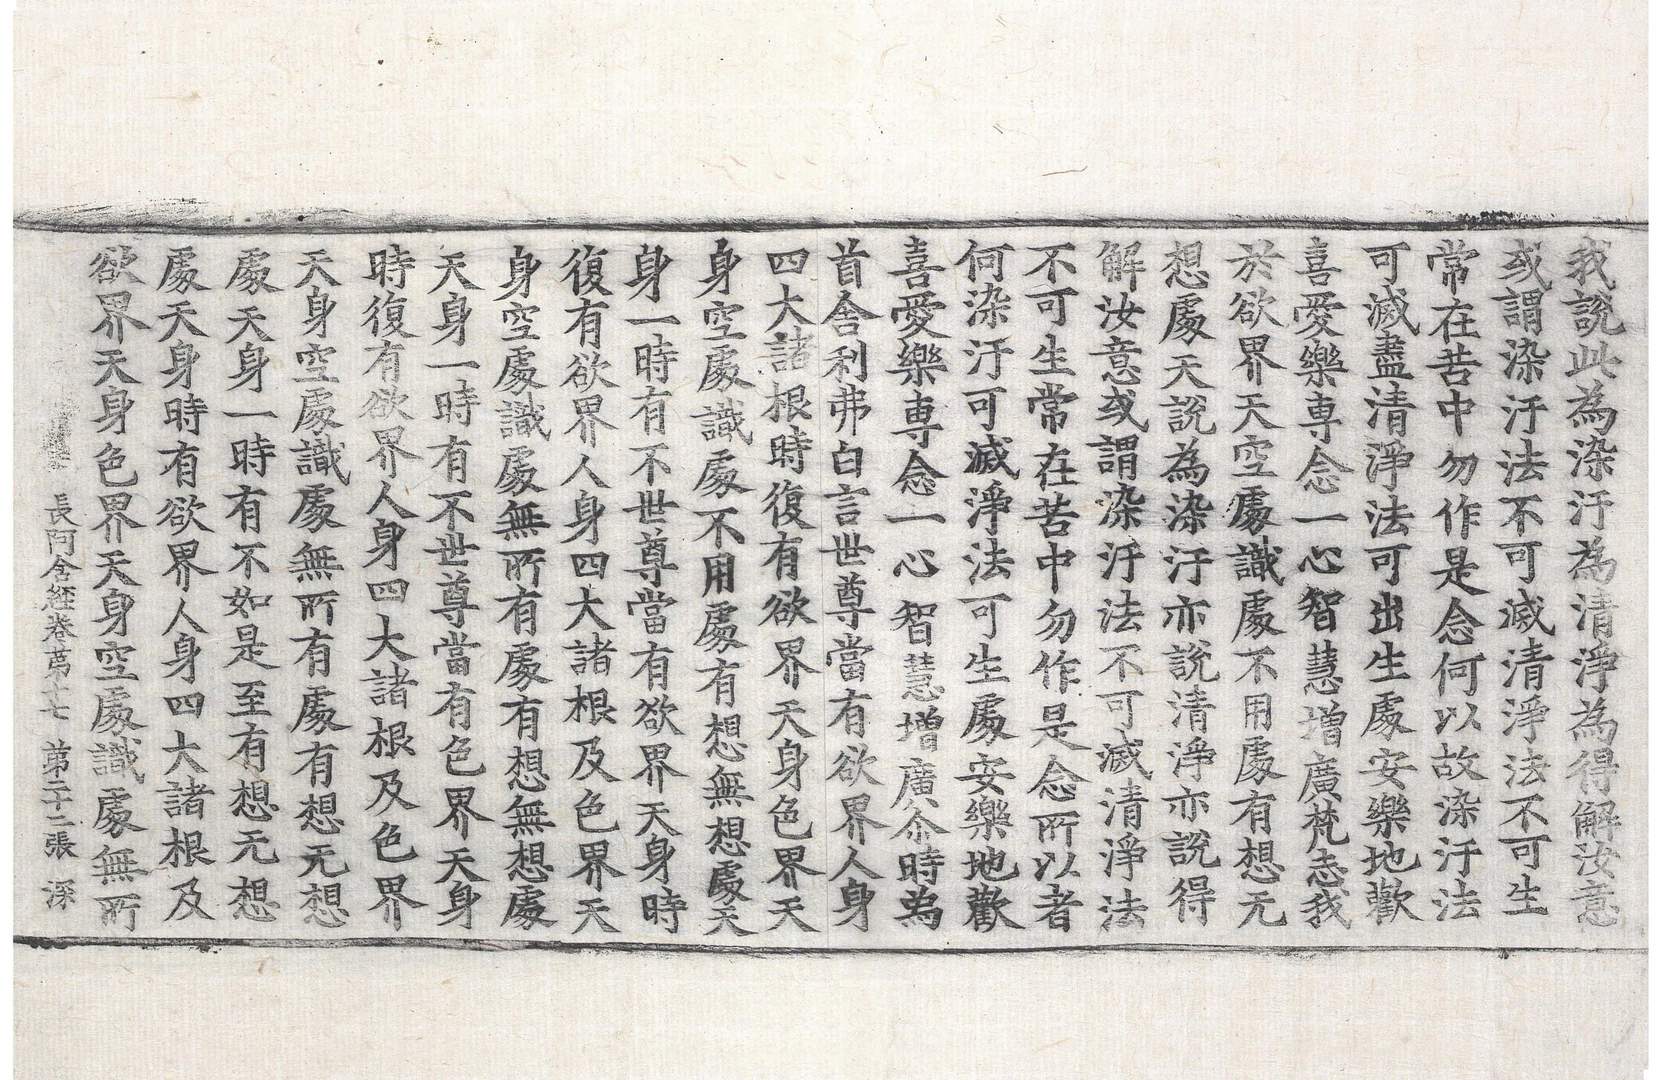 我說此為染汙為清淨為得解汝意
或謂染汙法不可滅清淨法不可生
常在苦中勿作是念何以故染汙法
可滅盡清淨法可出生處安樂地歡
喜愛樂専念一心智慧增廣梵志我
於欲界天空處識處不用處有想无
想處天說為染汙亦說清淨亦說得
解汝意或謂染汙法不可滅清淨法
不可生常在苦中勿作是念所以者
何染汙可滅淨法可生處安樂地歡
喜愛樂専念一心智慧增廣尒時為
首舍利弗白言世尊當有欲界人身
四大諸根時復有欲界天身色界天
身空處識處不用處有想無想處天
身一時有不世尊當有欲界天身時
復有欲界人身四大諸根及色界天
身空處識處無所有處有想無想處
天身一時有不世尊當有色界天身
時復有欲界人身四大諸根及色界
天身空處識處無所有處有想无想
處天身一時有不如是至有想无想
處天身時有欲界人身四大諸根及
欲界天身色界天身空處識處無所
長阿含經卷苐十七 第二十二張 深